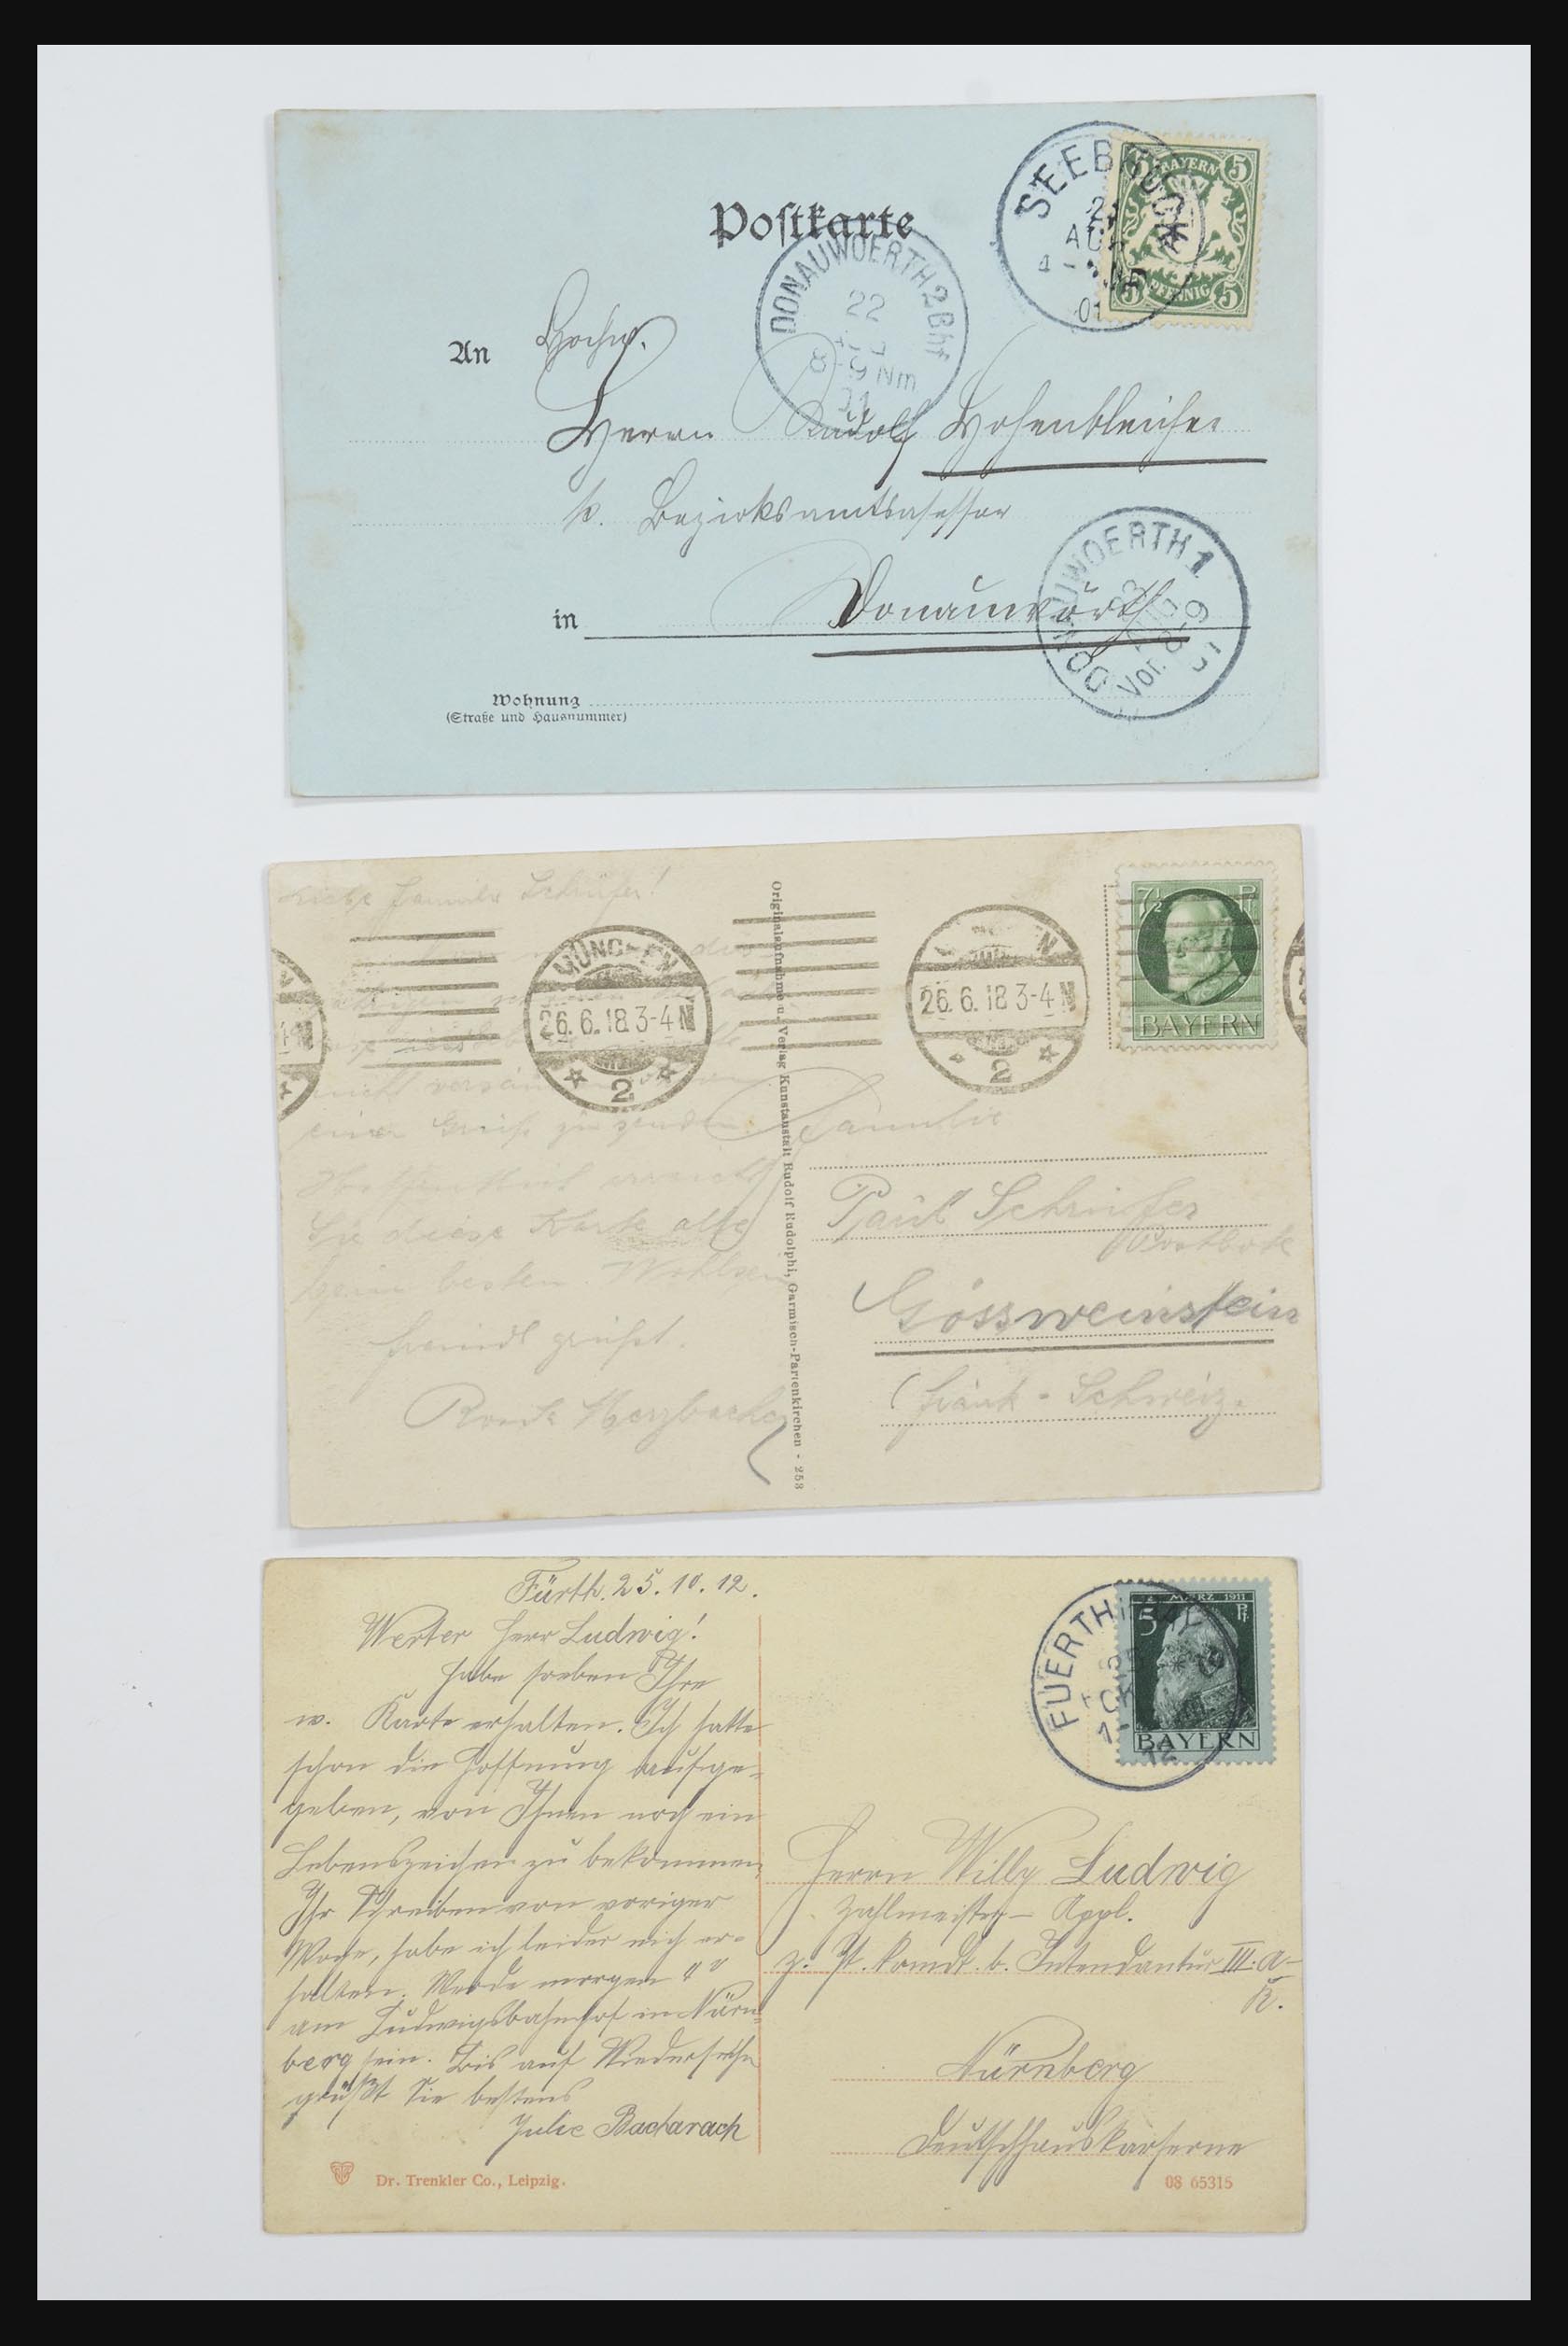 Postkarte
SEEBRUCK
AUG
01
5 BAYERN 5
5 PFENNIG 5
DONAUWOERTH 2 Bhf
22
8-9 Nm
01
An
Hochw.
Herrn Rudolf Hohenbleicher
k. Bezirksamtsassessor
in Donauwörth
DONAUWOERTH 1.
AUG
Vor. 8-9
01
Wohnung
(Straße und Hausnummer)
Familie Schrüfer!
MÜNCHEN
26.6.18 3-4 N
2
MÜNCHEN
26.6.18 3-4 N
2
7½ Pf
BAYERN
nicht
einen Gruß zu senden.
Sie diese Karte alle
beim besten Wohlsein
freundl. grüßt.
Herzbacher
Originalaufnahme u. Verlag Kunstanstalt Rudolf Rudolphi, Garmisch-Partenkirchen - 253
Familie
Paul Schrüfer
Postbote
Gössweinstein
(fränk. Schweiz.
Fürth. 25.10.12.
Werter Herr Ludwig!
Habe soeben Ihre
w. Karte erhalten. Ich hatte
schon die Hoffnung aufge-
geben, von Ihnen noch ein
Lebenszeichen zu bekommen,
Ihr Schreiben von voriger
Woche, habe ich leider nich er-
halten. Werde morgen
am Ludwigsbahnhof in Nürn-
berg sein. Bis auf Wiedersehn
grüßt Sie bestens
Julie Bacharach
FUERTH
OKT
12
MÄRZ 1911
5 Pf.
BAYERN
Herrn Willy Ludwig
Zahlmeister-Appl.
z. Zt. komdt. b. Intendantur III. A-
K.
Nürnberg
Deutschhauskaserne
Dr. Trenkler Co., Leipzig.
08 65315